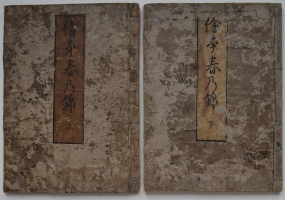 繪本春乃錦
繪本春乃錦